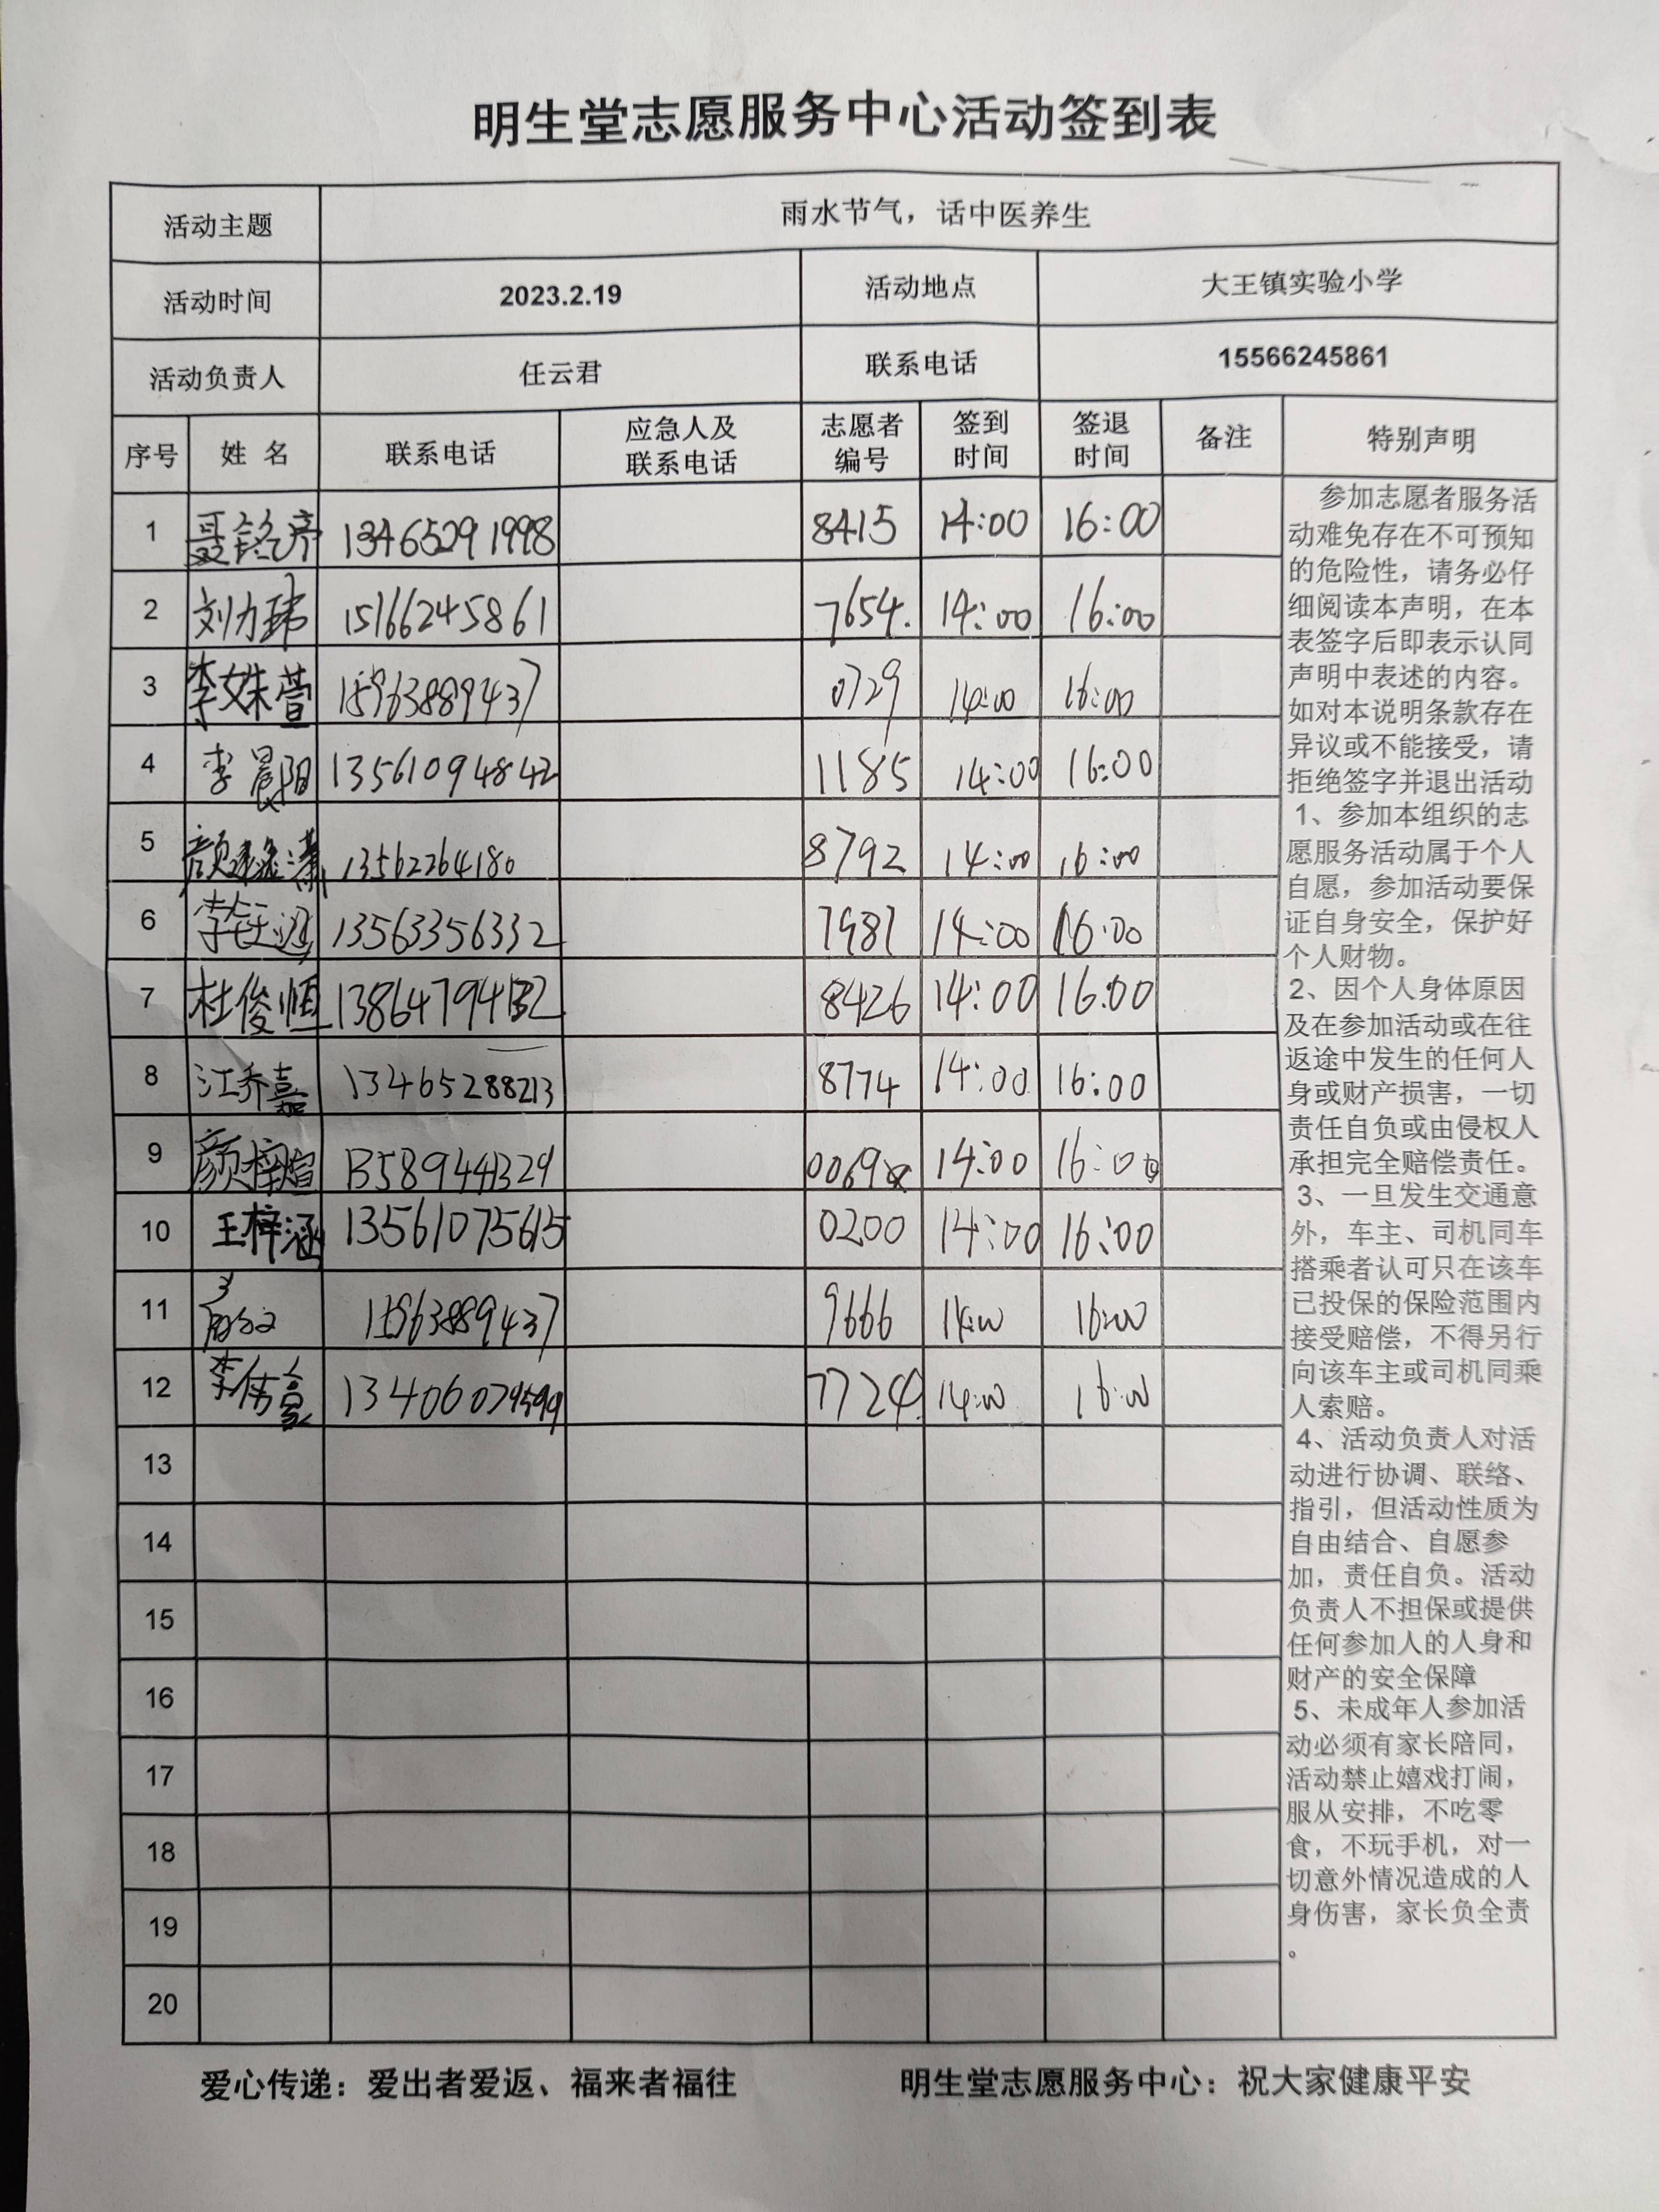 明生堂志愿服务中心活动签到表
活动主题 雨水节气，话中医养生
活动时间 2023.2.19 活动地点 大王镇实验小学
活动负责人 任云君 联系电话 15566245861
序号 姓 名 联系电话 应急人及联系电话 志愿者编号 签到时间 签退时间 备注 特别声明
1 聂铭序 13465291998 8415 14:00 16:00
2 刘力玮 15166245861 7654. 14:00 16:00
3 李姝萱 15963889437 0729 14:00 16:00
4 李晨阳 13561094842 1185 14:00 16:00
5 13562264180 8792 14:00 16:00
6 13563356332 7987 14:00 16:00
7 杜俊恒 13864794132 8426 14:00 16:00
8 江乔嘉 13465288213 8774 14:00 16:00
9 颜梓煊 13589441329 0069 14:00 16:00
10 王梓涵 13561075615 0200 14:00 16:00
11 15963889437 9666 14:00 16:00
12 李伟豪 13406079599 7724 14:00 16:00
13
14
15
16
17
18
19
20
参加志愿者服务活
动难免存在不可预知
的危险性，请务必仔
细阅读本声明，在本
表签字后即表示认同
声明中表述的内容。
如对本说明条款存在
异议或不能接受，请
拒绝签字并退出活动
1、参加本组织的志
愿服务活动属于个人
自愿，参加活动要保
证自身安全，保护好
个人财物。
2、因个人身体原因
及在参加活动或在往
返途中发生的任何人
身或财产损害，一切
责任自负或由侵权人
承担完全赔偿责任。
3、一旦发生交通意
外，车主、司机同车
搭乘者认可只在该车
已投保的保险范围内
接受赔偿，不得另行
向该车主或司机同乘
人索赔。
4、活动负责人对活
动进行协调、联络、
指引，但活动性质为
自由结合、自愿参
加，责任自负。活动
负责人不担保或提供
任何参加人的人身和
财产的安全保障
5、未成年人参加活
动必须有家长陪同，
活动禁止嬉戏打闹，
服从安排，不吃零
食，不玩手机，对一
切意外情况造成的人
身伤害，家长负全责
。
爱心传递：爱出者爱返、福来者福往 明生堂志愿服务中心：祝大家健康平安